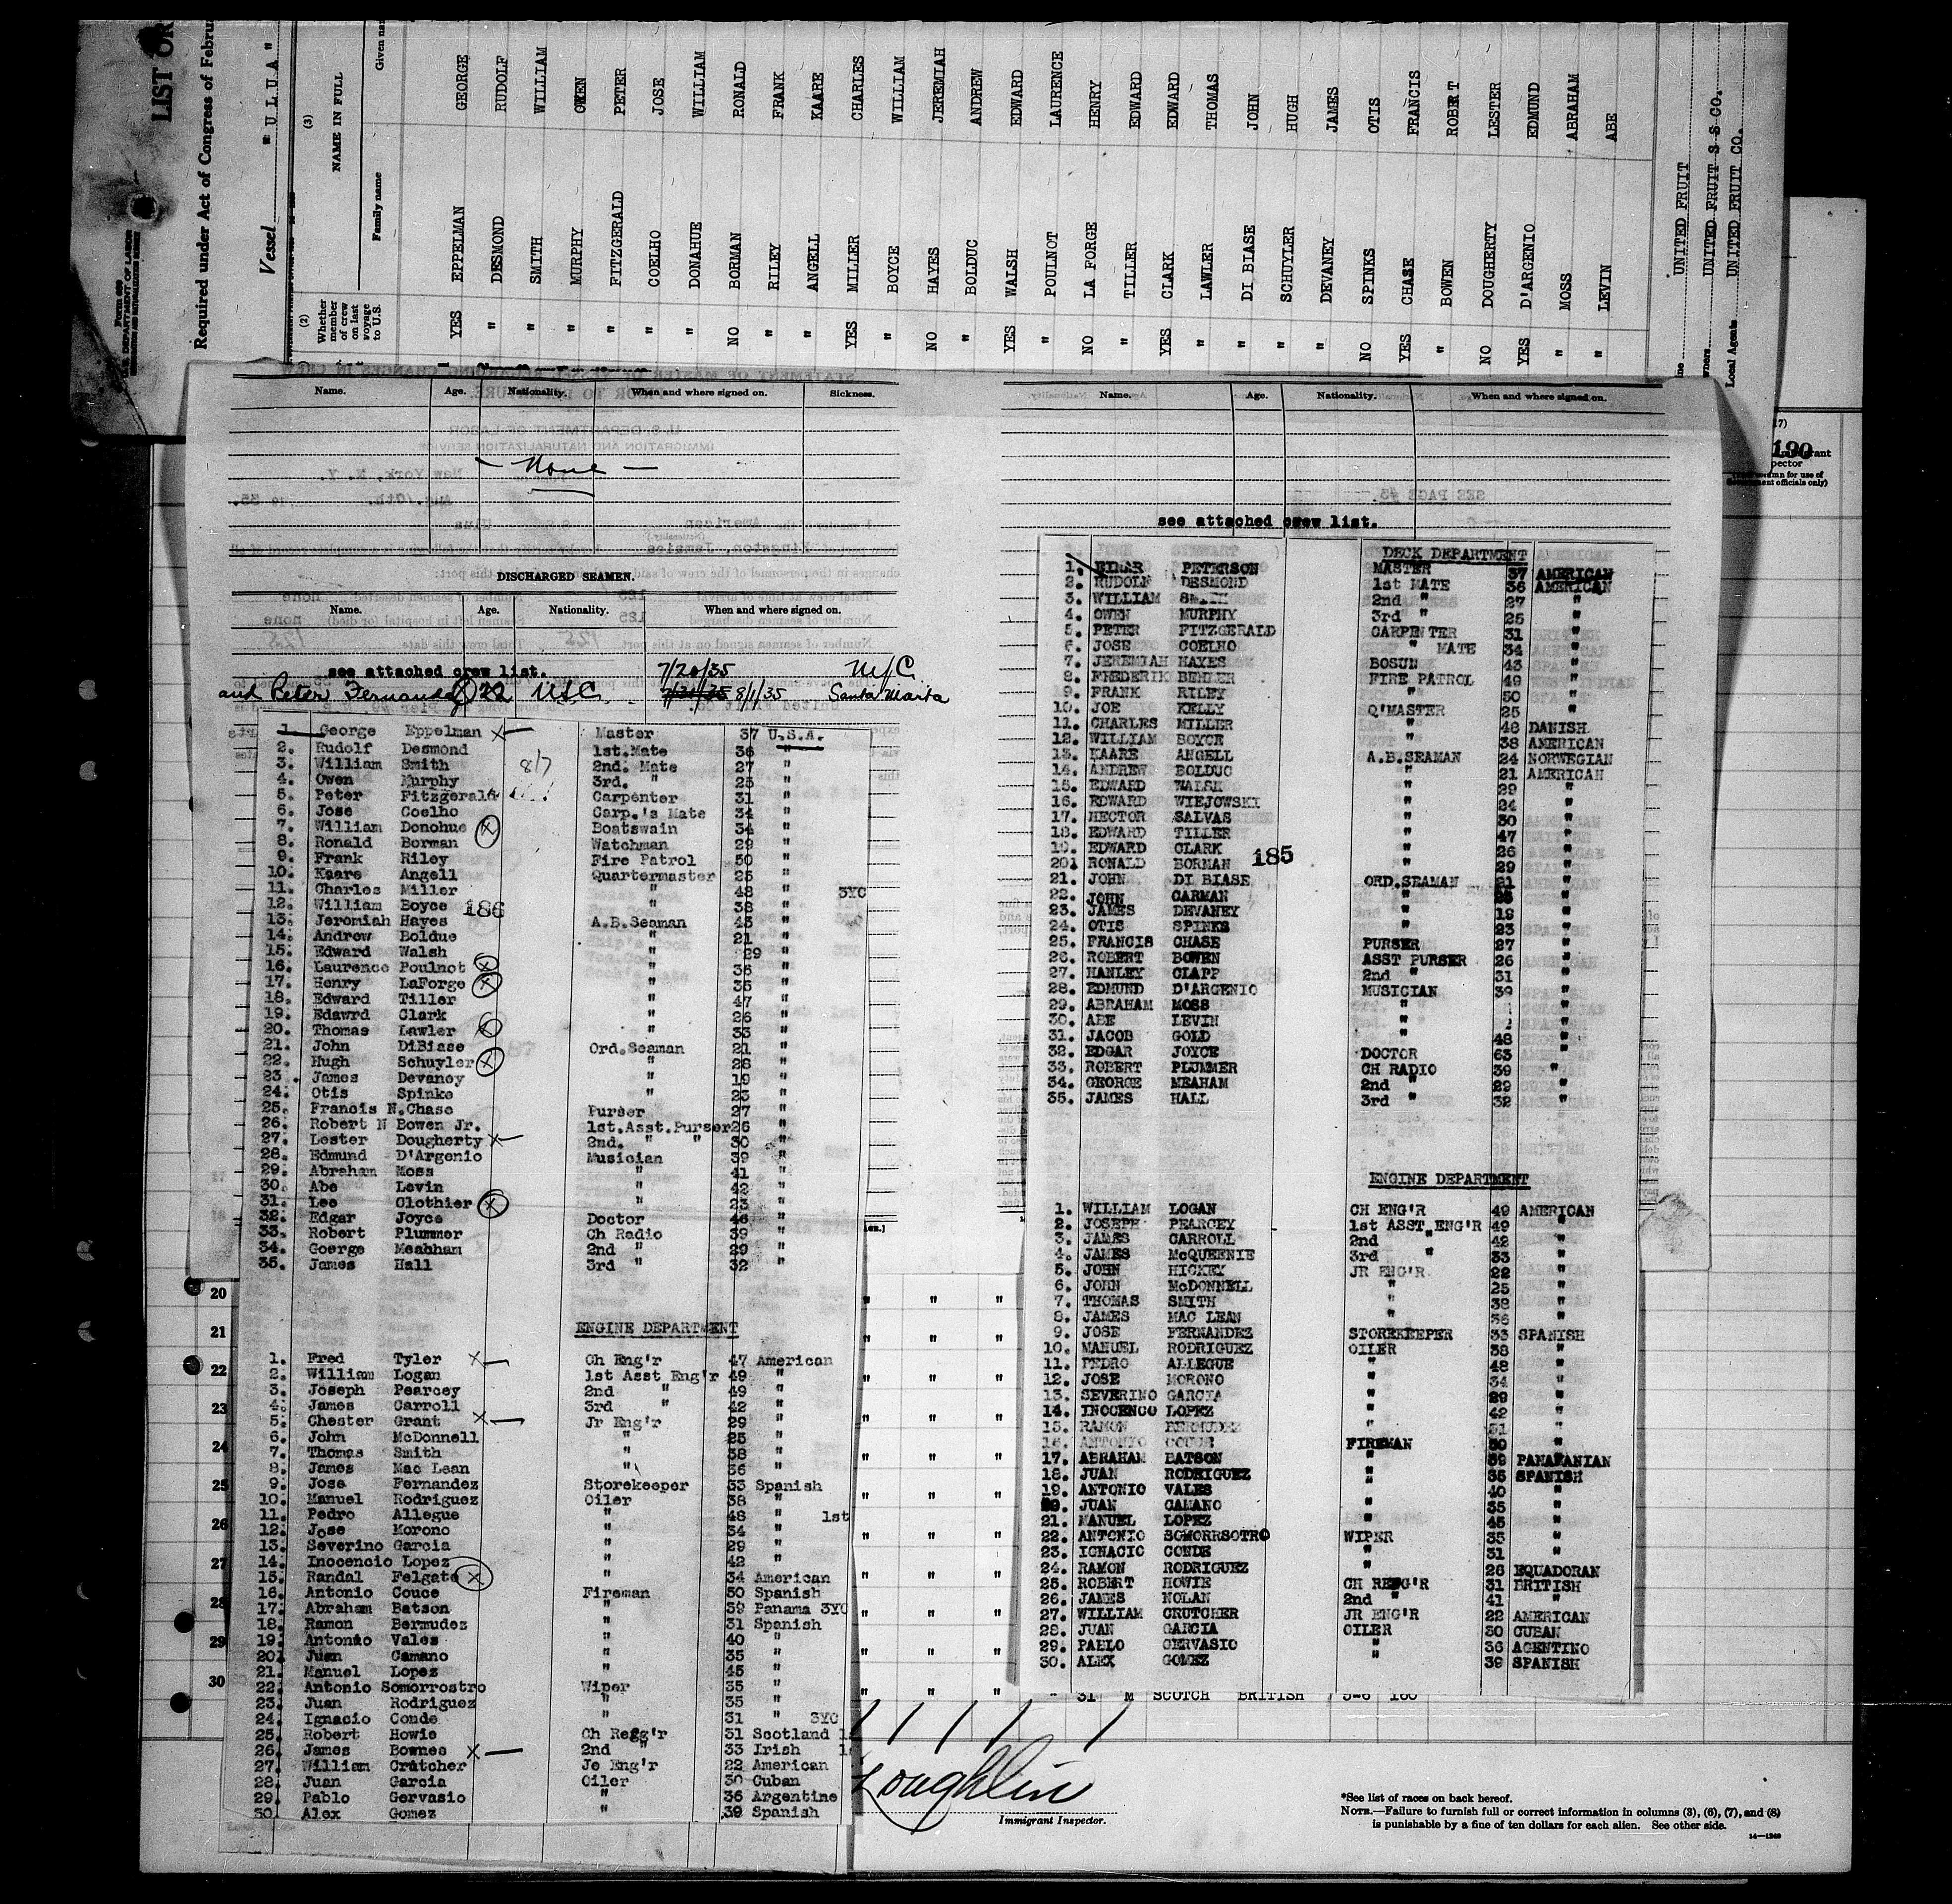 LIST OR
Required under Act of Congress of Febru
Vessel "ULUA"
(3)
NAME IN FULL
(2)
Whether member of crew on last voyage to U.S.
Family name
Given na
YES EPPELMAN GEORGE
" DESMOND RUDOLF
" SMITH WILLIAM
" MURPHY OWEN
" FITZGERALD PETER
" COELHO JOSE
" DONAHUE WILLIAM
NO BORMAN RONALD
" RILEY FRANK
" ANGELL KAARE
YES MILLER CHARLES
" BOYCE WILLIAM
NO HAYES JEREMIAH
" BOLDUC ANDREW
YES WALSH EDWARD
" POULNOT LAURENCE
NO LA FORGE HENRY
" TILLER EDWARD
YES CLARK EDWARD
" LAWLER THOMAS
" DI BIASE JOHN
" SCHUYLER HUGH
" DEVANEY JAMES
NO SPINKS OTIS
YES CHASE FRANCIS
" BOWEN ROBERT
NO DOUGHERTY LESTER
YES D'ARGENIO EDMUND
" MOSS ABRAHAM
" LEVIN ABE
ne UNITED FRUIT
wners UNITED FRUIT S S CO.
Local Agents UNITED FRUIT CO.
Name. Age. Nationality. When and where signed on. Sickness.
- None -
DISCHARGED SEAMEN.
Name. Age. Nationality. When and where signed on.
see attached crew list. 7/20/35 NYC
and Peter Fernandez 22 USC 8/1/35 Santa Marta
1. George Eppelman X Master 37 U.S.A.
2. Rudolf Desmond 1st.Mate 36 "
3. William Smith 8/7 2nd. Mate 27 "
4. Owen Murphy 3rd. " 25 "
5. Peter Fitzgerald Carpenter 31 "
6. Jose Coelho Carp.'s Mate 34 "
7. William Donohue X Boatswain 34 "
8. Ronald Borman Watchman 29 "
9. Frank Riley Fire Patrol 50 "
10. Kaare Angell Quartermaster 25 "
11. Charles Miller " 48 " 3YC
12. William Boyce 186 " 38 "
13. Jeromiah Hayes A.B.Seaman 43 "
14. Andrew Boldue " 21 "
15. Edward Walsh " 29 "
16. Laurence Poulnot X " 36 "
17. Henry LaForge X " 35 "
18. Edward Tiller " 47 "
19. Edawrd Clark " 26 "
20. Thomas Lawler X " 33 "
21. John DiBiase Ord.Seaman 21 "
22. Hugh Schuyler X " 28 "
23. James Devaney " 19 "
24. Otis Spinks " 23 "
25. Francis N.Chase Purser 27 "
26. Robert N Bowen Jr. 1st.Asst.Purser 26 "
27. Lester Dougherty X 2nd. " " 30 "
28. Edmund D'Argenio Musician 39 "
29. Abraham Moss " 41 "
30. Abe Levin " 42 "
31. Lee Clothier X " 23 "
32. Edgar Joyce Doctor 46 "
33. Robert Plummer Ch Radio 39 "
34. Goerge Meahham 2nd " 29 "
35. James Hall 3rd " 32 "
ENGINE DEPARTMENT
1. Fred Tyler X Ch Eng'r 47 American
2. William Logan 1st Asst Eng'r 49 "
3. Joseph Pearcey 2nd " 49 "
4. James Carroll 3rd " 42 "
5. Chester Grant X Jr Eng'r 29 "
6. John McDonnell " 25 "
7. Thomas Smith " 38 "
8. James Mac Lean " 36 "
9. Jose Fernandez Storekeeper 33 Spanish
10. Manuel Rodriguez Oiler 38 "
11. Pedro Allegue " 48 " 1st
12. Jose Morono " 34 "
13. Severino Garcia " 29 "
14. Inocencio Lopez " 42 "
15. Randal Felgate X " 34 American
16. Antonio Couce Fireman 50 Spanish
17. Abraham Batson " 39 Panama 3YC
18. Ramon Bermudez " 31 Spanish
19. Antonio Vales " 40 "
20. Juan Camano " 35 "
21. Manuel Lopez " 45 "
22. Antonio Somorrostro Wiper 35 "
23. Juan Rodriguez " 35 "
24. Ignacio Conde " 31 " 3YC
25. Robert Howie Ch Refg'r 31 Scotland
26. James Bownes X 2nd " 33 Irish
27. William Crutcher Je Eng'r 22 American
28. Juan Garcia Oiler 30 Cuban
29. Pablo Gervasio " 36 Argentine
30. Alex Gomez " 39 Spanish
Name. Age. Nationality. When and where signed on.
see attached crew list.
DECK DEPARTMENT
1. EINAR PETERSON MASTER 37 AMERICAN
2. RUDOLF DESMOND 1st MATE 36 AMERICAN
3. WILLIAM SMITH 2nd " 27 "
4. OWEN MURPHY 3rd " 25 "
5. PETER FITZGERALD CARPENTER 31 "
6. JOSE COELHO " MATE 34 "
7. JEREMIAH HAYES BOSUN 43 "
8. FREDERIK BEHLER FIRE PATROL 49 "
9. FRANK RILEY " 50 "
10. JOE KELLY Q'MASTER 25 "
11. CHARLES MILLER " 48 DANISH
12. WILLIAM BOYCE " 38 AMERICAN
13. KAARE ANGELL A.B.SEAMAN 24 NORWEGIAN
14. ANDREW BOLDUC " 21 AMERICAN
15. EDWARD WALSH " 29 "
16. EDWARD WIEJOWSKI " 24 "
17. HECTOR SALVAS " 30 "
18. EDWARD TILLER " 47 "
19. EDWARD CLARK 185 " 26 "
20. RONALD BORMAN " 29 "
21. JOHN DI BIASE ORD.SEAMAN 21 "
22. JOHN CARMAN " "
23. JAMES DEVANEY " 19 "
24. OTIS SPINKS " 23 "
25. FRANCIS CHASE PURSER 27 "
26. ROBERT BOWEN ASST PURSER 26 "
27. HANLEY CLAPP 2nd " 31 "
28. EDMUND D'ARGENIO MUSICIAN 39 "
29. ABRAHAM MOSS " "
30. ABE LEVIN " "
31. JACOB GOLD " 48 "
32. EDGAR JOYCE DOCTOR 63 "
33. ROBERT PLUMMER CH RADIO 39 "
34. GEORGE MEAHAM 2nd " 29 "
35. JAMES HALL 3rd " 32 "
ENGINE DEPARTMENT
1. WILLIAM LOGAN CH ENG'R 49 AMERICAN
2. JOSEPH PEARCEY 1st ASST ENG'R 49 "
3. JAMES CARROLL 2nd " 42 "
4. JAMES McQUEENIE 3rd " 33 "
5. JOHN HICKEY JR ENG'R 22 "
6. JOHN McDONNELL " 25 "
7. THOMAS SMITH " 38 "
8. JAMES MAC LEAN " 36 "
9. JOSE FERNANDEZ STOREKEEPER 33 SPANISH
10. MANUEL RODRIGUEZ OILER 38 "
11. PEDRO ALLEGUE " 48 "
12. JOSE MORONO " 34 "
13. SEVERINO GARCIA " 29 "
14. INOCENCO LOPEZ " 42 "
15. RAMON BERMUDEZ " 31 "
16. ANTONIO COUCE FIREMAN 50 "
17. ABRAHAM BATSON " 39 PANAMANIAN
18. JUAN RODRIGUEZ " 35 SPANISH
19. ANTONIO VALES " 40 "
20. JUAN CAMANO " 35 "
21. MANUEL LOPEZ " 45 "
22. ANTONIO SOMORRSOTRO WIPER 35 "
23. IGNACIO CONDE " 31 "
24. RAMON RODRIGUEZ " 26 EQUADORAN
25. ROBERT HOWIE CH REFG'R 31 BRITISH
26. JAMES NOLAN 2nd " 41 "
27. WILLIAM CRUTCHER JR ENG'R 22 AMERICAN
28. JUAN GARCIA OILER 30 CUBAN
29. PABLO GERVASIO " 36 AGENTINO
30. ALEX GOMEZ " 39 SPANISH
20
21
22
23
24
25
26
27
28
29
30
31 M SCOTCH BRITISH 5-6 160
190
Loughlin
Immigrant Inspector.
*See list of races on back hereof.
NOTE.—Failure to furnish full or correct information in columns (3), (6), (7), and (8)
is punishable by a fine of ten dollars for each alien. See other side.
14—1240